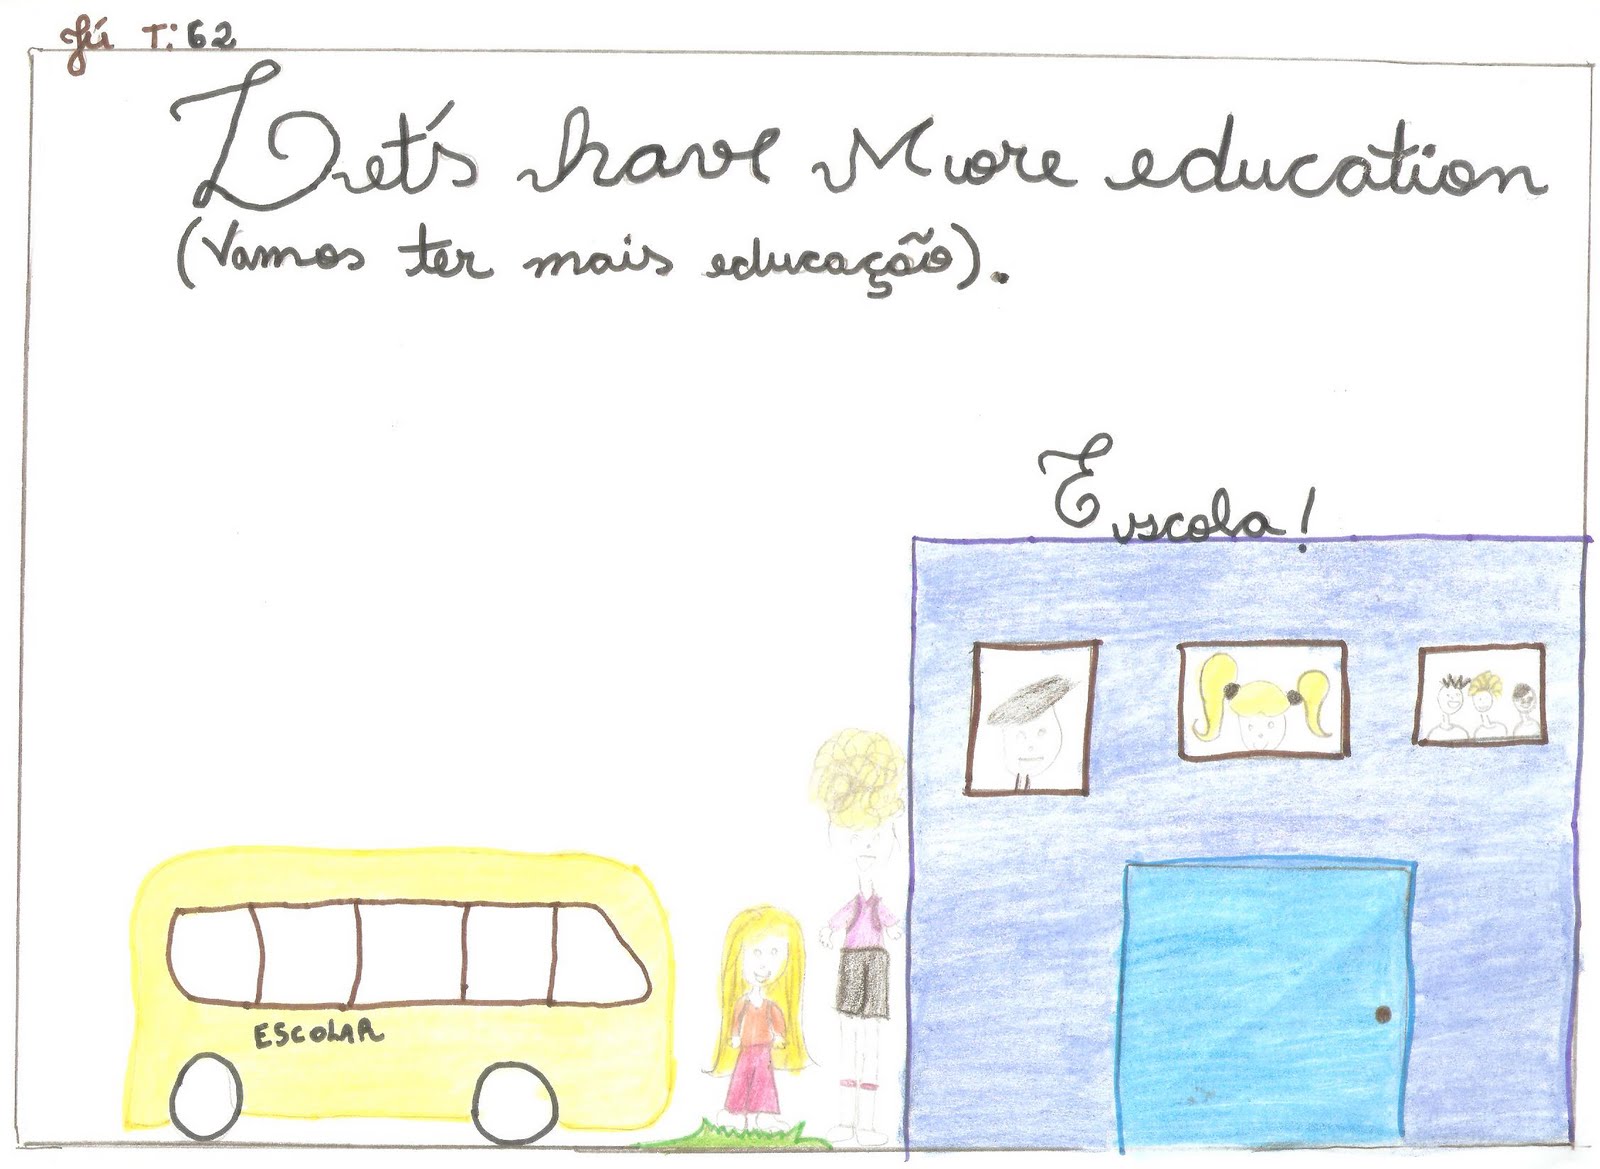 Jú T: 62
Let's have More education
(Vamos ter mais educação).
Escola!
ESCOLAR